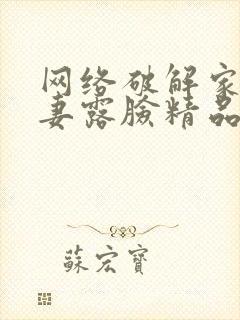 网络破解家
妻露臉精品
蘇宏寶